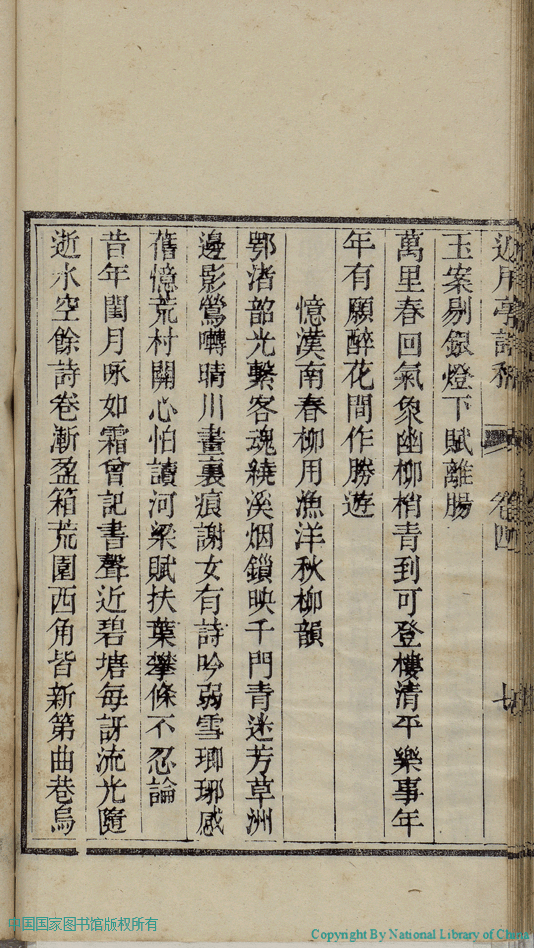 近用亭詩稿 卷四 七
玉案剔銀燈下賦離腸
萬里春回氣象幽柳梢青到可登樓清平樂事年
年有願醉花間作勝遊
憶漢南春柳用漁洋秋柳韻
鄂渚韶光繫客魂繞溪烟鎖映千門青迷芳草洲
邊影鶯囀晴川畫裏痕謝女有詩吟弱雪瑯琊感
舊憶荒村關心怕讀河梁賦扶葉攀條不忍論
昔年閨月咏如霜曾記書聲近碧塘每訝流光隨
逝水空餘詩卷漸盈箱荒園西角皆新第曲巷烏
中国国家图书馆版权所有
Copyright By National Library of China